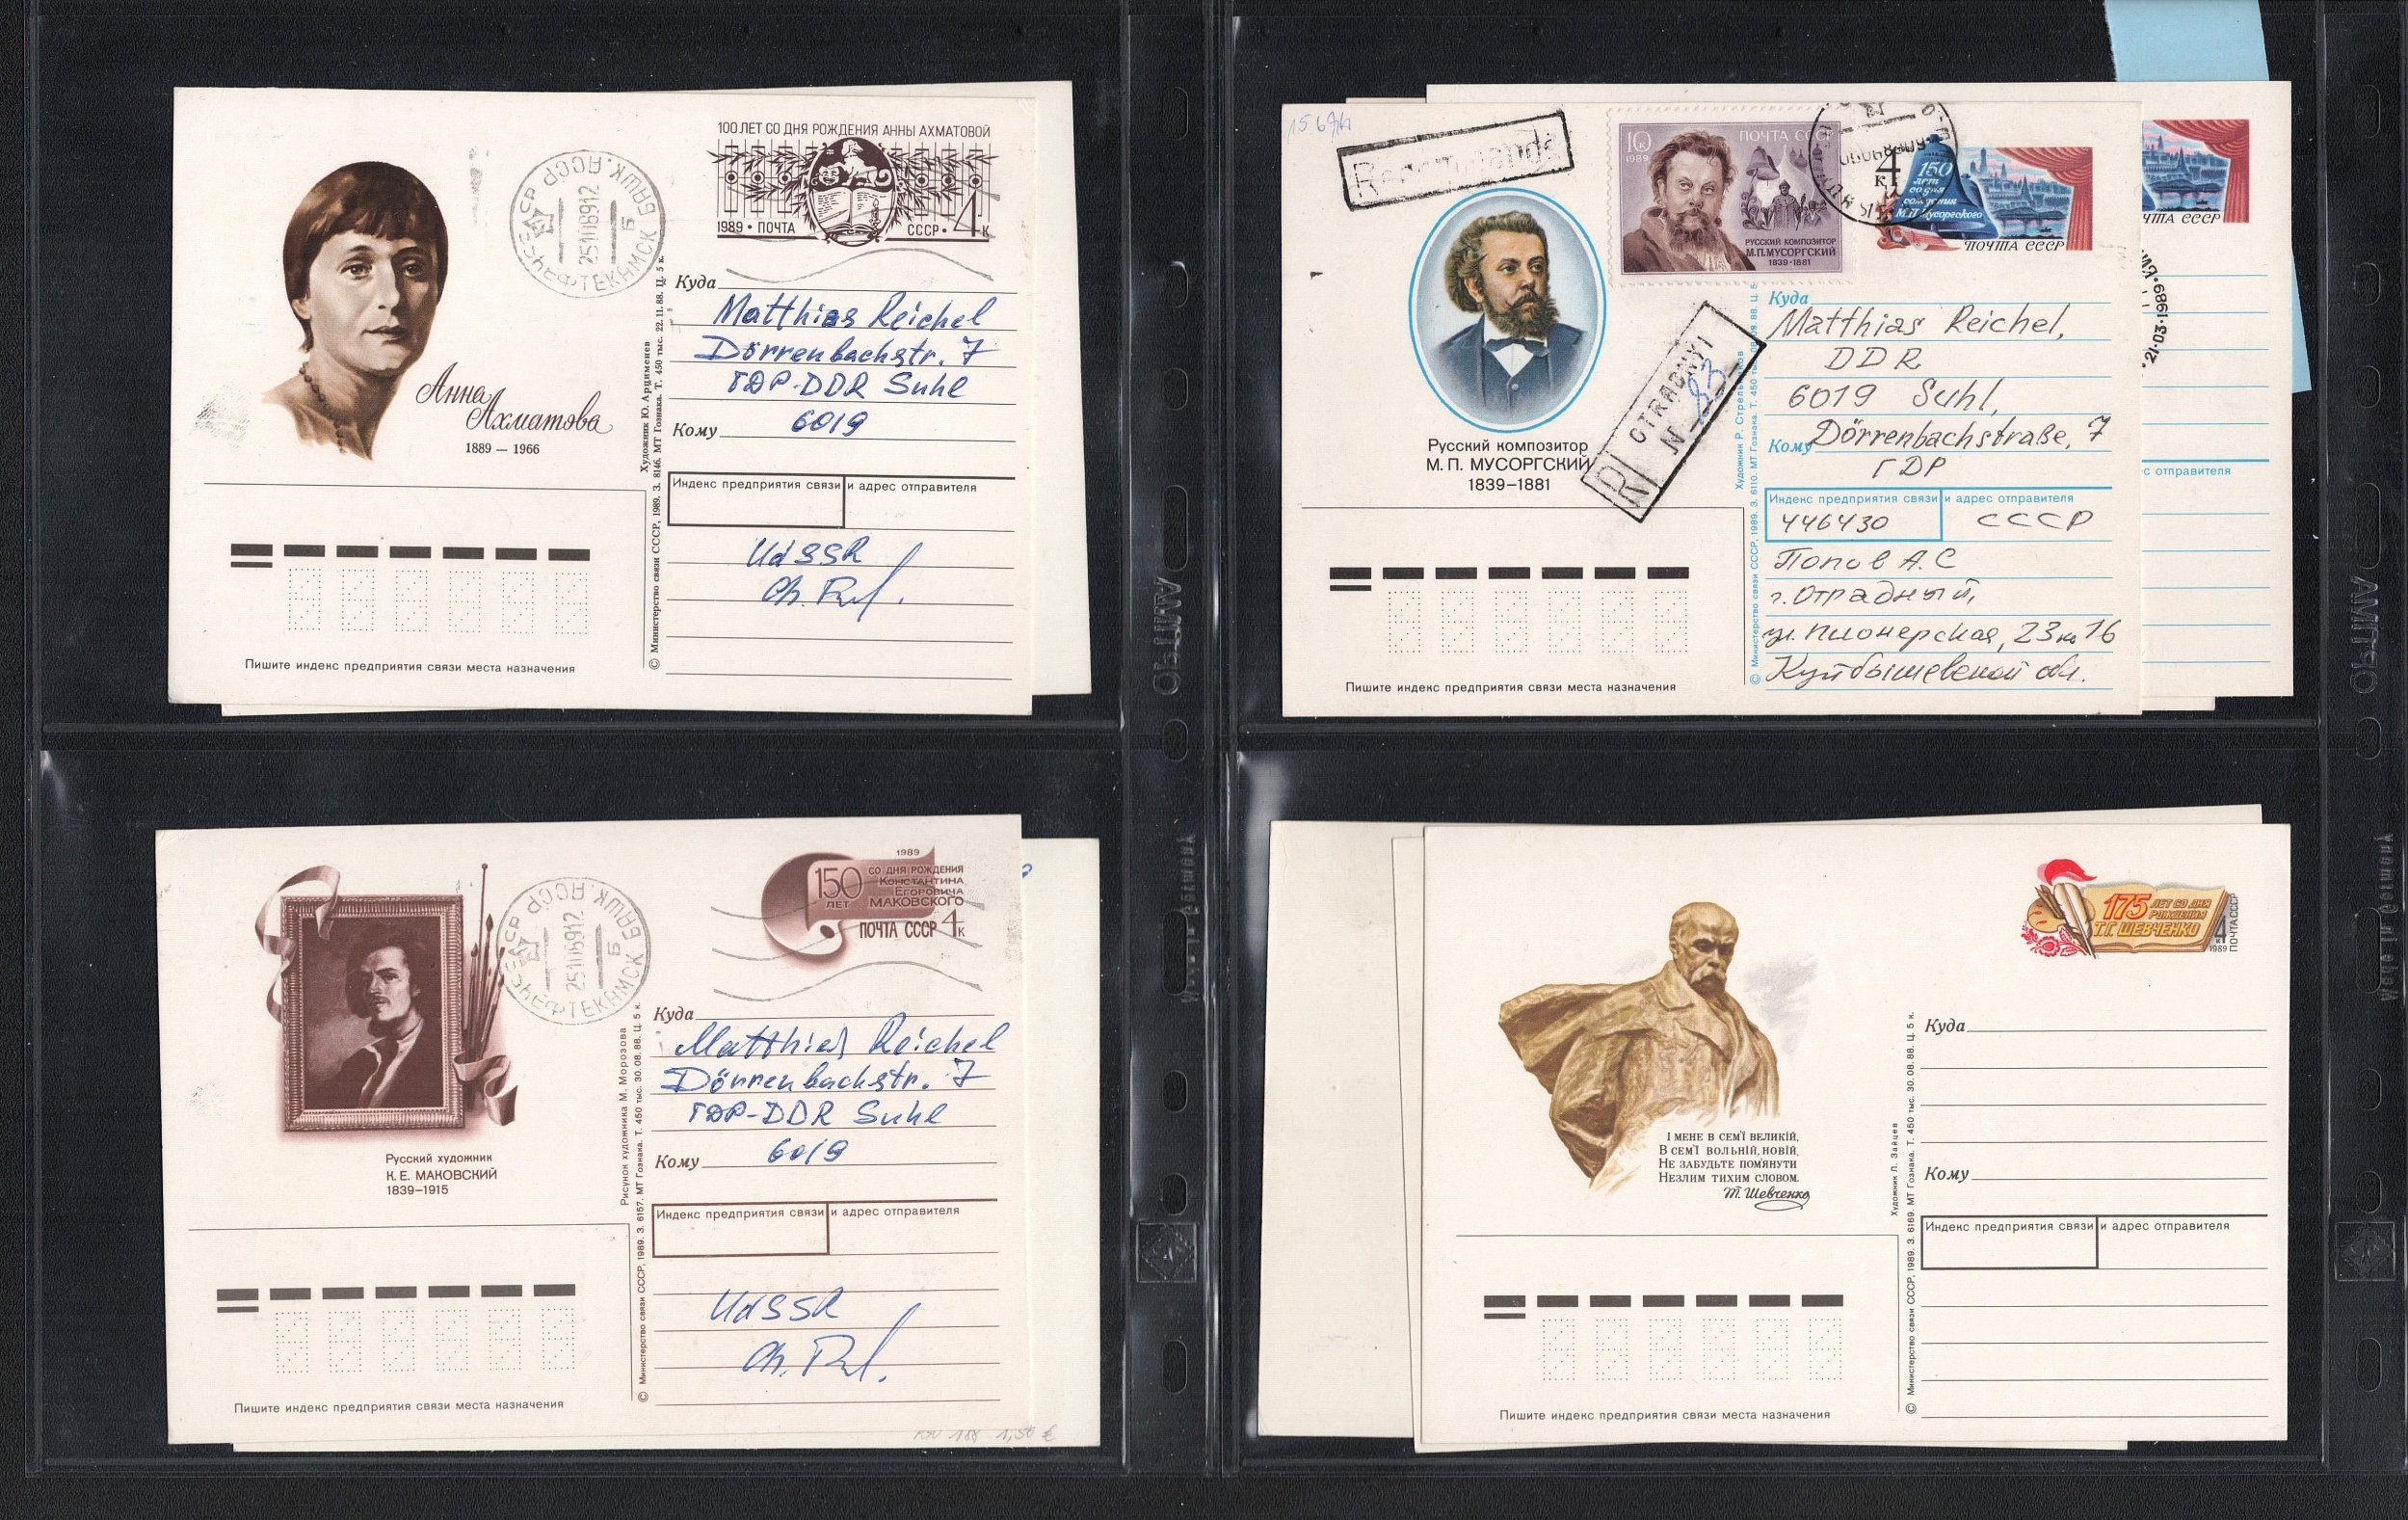 100 ЛЕТ СО ДНЯ РОЖДЕНИЯ АННЫ АХМАТОВОЙ
1989 • ПОЧТА СССР • 4 К
БАШК. АССР
НЕФТЕКАМСК
Б
Анна
Ахматова
1889 — 1966
Куда
Matthias Reichel
Dörrenbachstr. 7
ГДР-DDR Suhl
6019
Кому
Индекс предприятия связи и адрес отправителя
UdSSR
Художник Ю. Арцименев
© Министерство связи СССР, 1989. З. 8146. МТ Гознака. Т. 450 тыс. 22.11.88. Ц. 5 к.
Пишите индекс предприятия связи места назначения
Recommandé
10 к
1989
ПОЧТА СССР
РУССКИЙ КОМПОЗИТОР
М.П. МУСОРГСКИЙ
1839-1881
4 к
150
лет
со дня
рождения
М.П. Мусоргского
ПОЧТА СССР
ЧТА СССР
21-03-1989
R OTRADNYI
N 83
Русский композитор
М. П. МУСОРГСКИЙ
1839–1881
Куда
Matthias Reichel,
DDR
6019 Suhl,
Кому Dörrenbachstraße, 7
ГДР
Индекс предприятия связи и адрес отправителя
446430 СССР
Попов А.С
г. Отрадный,
ул. Пионерская, 23 кв 16
Куйбышевской обл.
с отправителя
© Министерство связи СССР, 1989. З. 6110. МТ Гознака. Т. 450
Пишите индекс предприятия связи места назначения
1989
150 ЛЕТ
СО ДНЯ РОЖДЕНИЯ
КОНСТАНТИНА
ЕГОРОВИЧА
МАКОВСКОГО
ПОЧТА СССР 4 к
БАШК. АССР
НЕФТЕКАМСК
Б
Русский художник
К. Е. МАКОВСКИЙ
1839–1915
Куда
Matthias Reichel
Dörrenbachstr. 7
ГДР-DDR Suhl
6019
Кому
Индекс предприятия связи и адрес отправителя
UdSSR
Рисунок художника М. Морозова
© Министерство связи СССР, 1989. З. 6157. МТ Гознака. Т. 450 тыс. 30.08.88. Ц. 5 к.
Пишите индекс предприятия связи места назначения
1,50 €
175 ЛЕТ СО ДНЯ
РОЖДЕНИЯ
Т.Г. ШЕВЧЕНКО
4 к
1989
ПОЧТА СССР
І МЕНЕ В СЕМ'Ї ВЕЛИКІЙ,
В СЕМ'Ї ВОЛЬНІЙ, НОВІЙ,
НЕ ЗАБУДЬТЕ ПОМ'ЯНУТИ
НЕЗЛИМ ТИХИМ СЛОВОМ.
Т. Шевченко
Куда
Кому
Индекс предприятия связи и адрес отправителя
Художник Л. Зайцев
© Министерство связи СССР, 1989. З. 6169. МТ Гознака. Т. 450 тыс. 30.08.88. Ц. 5 к.
Пишите индекс предприятия связи места назначения